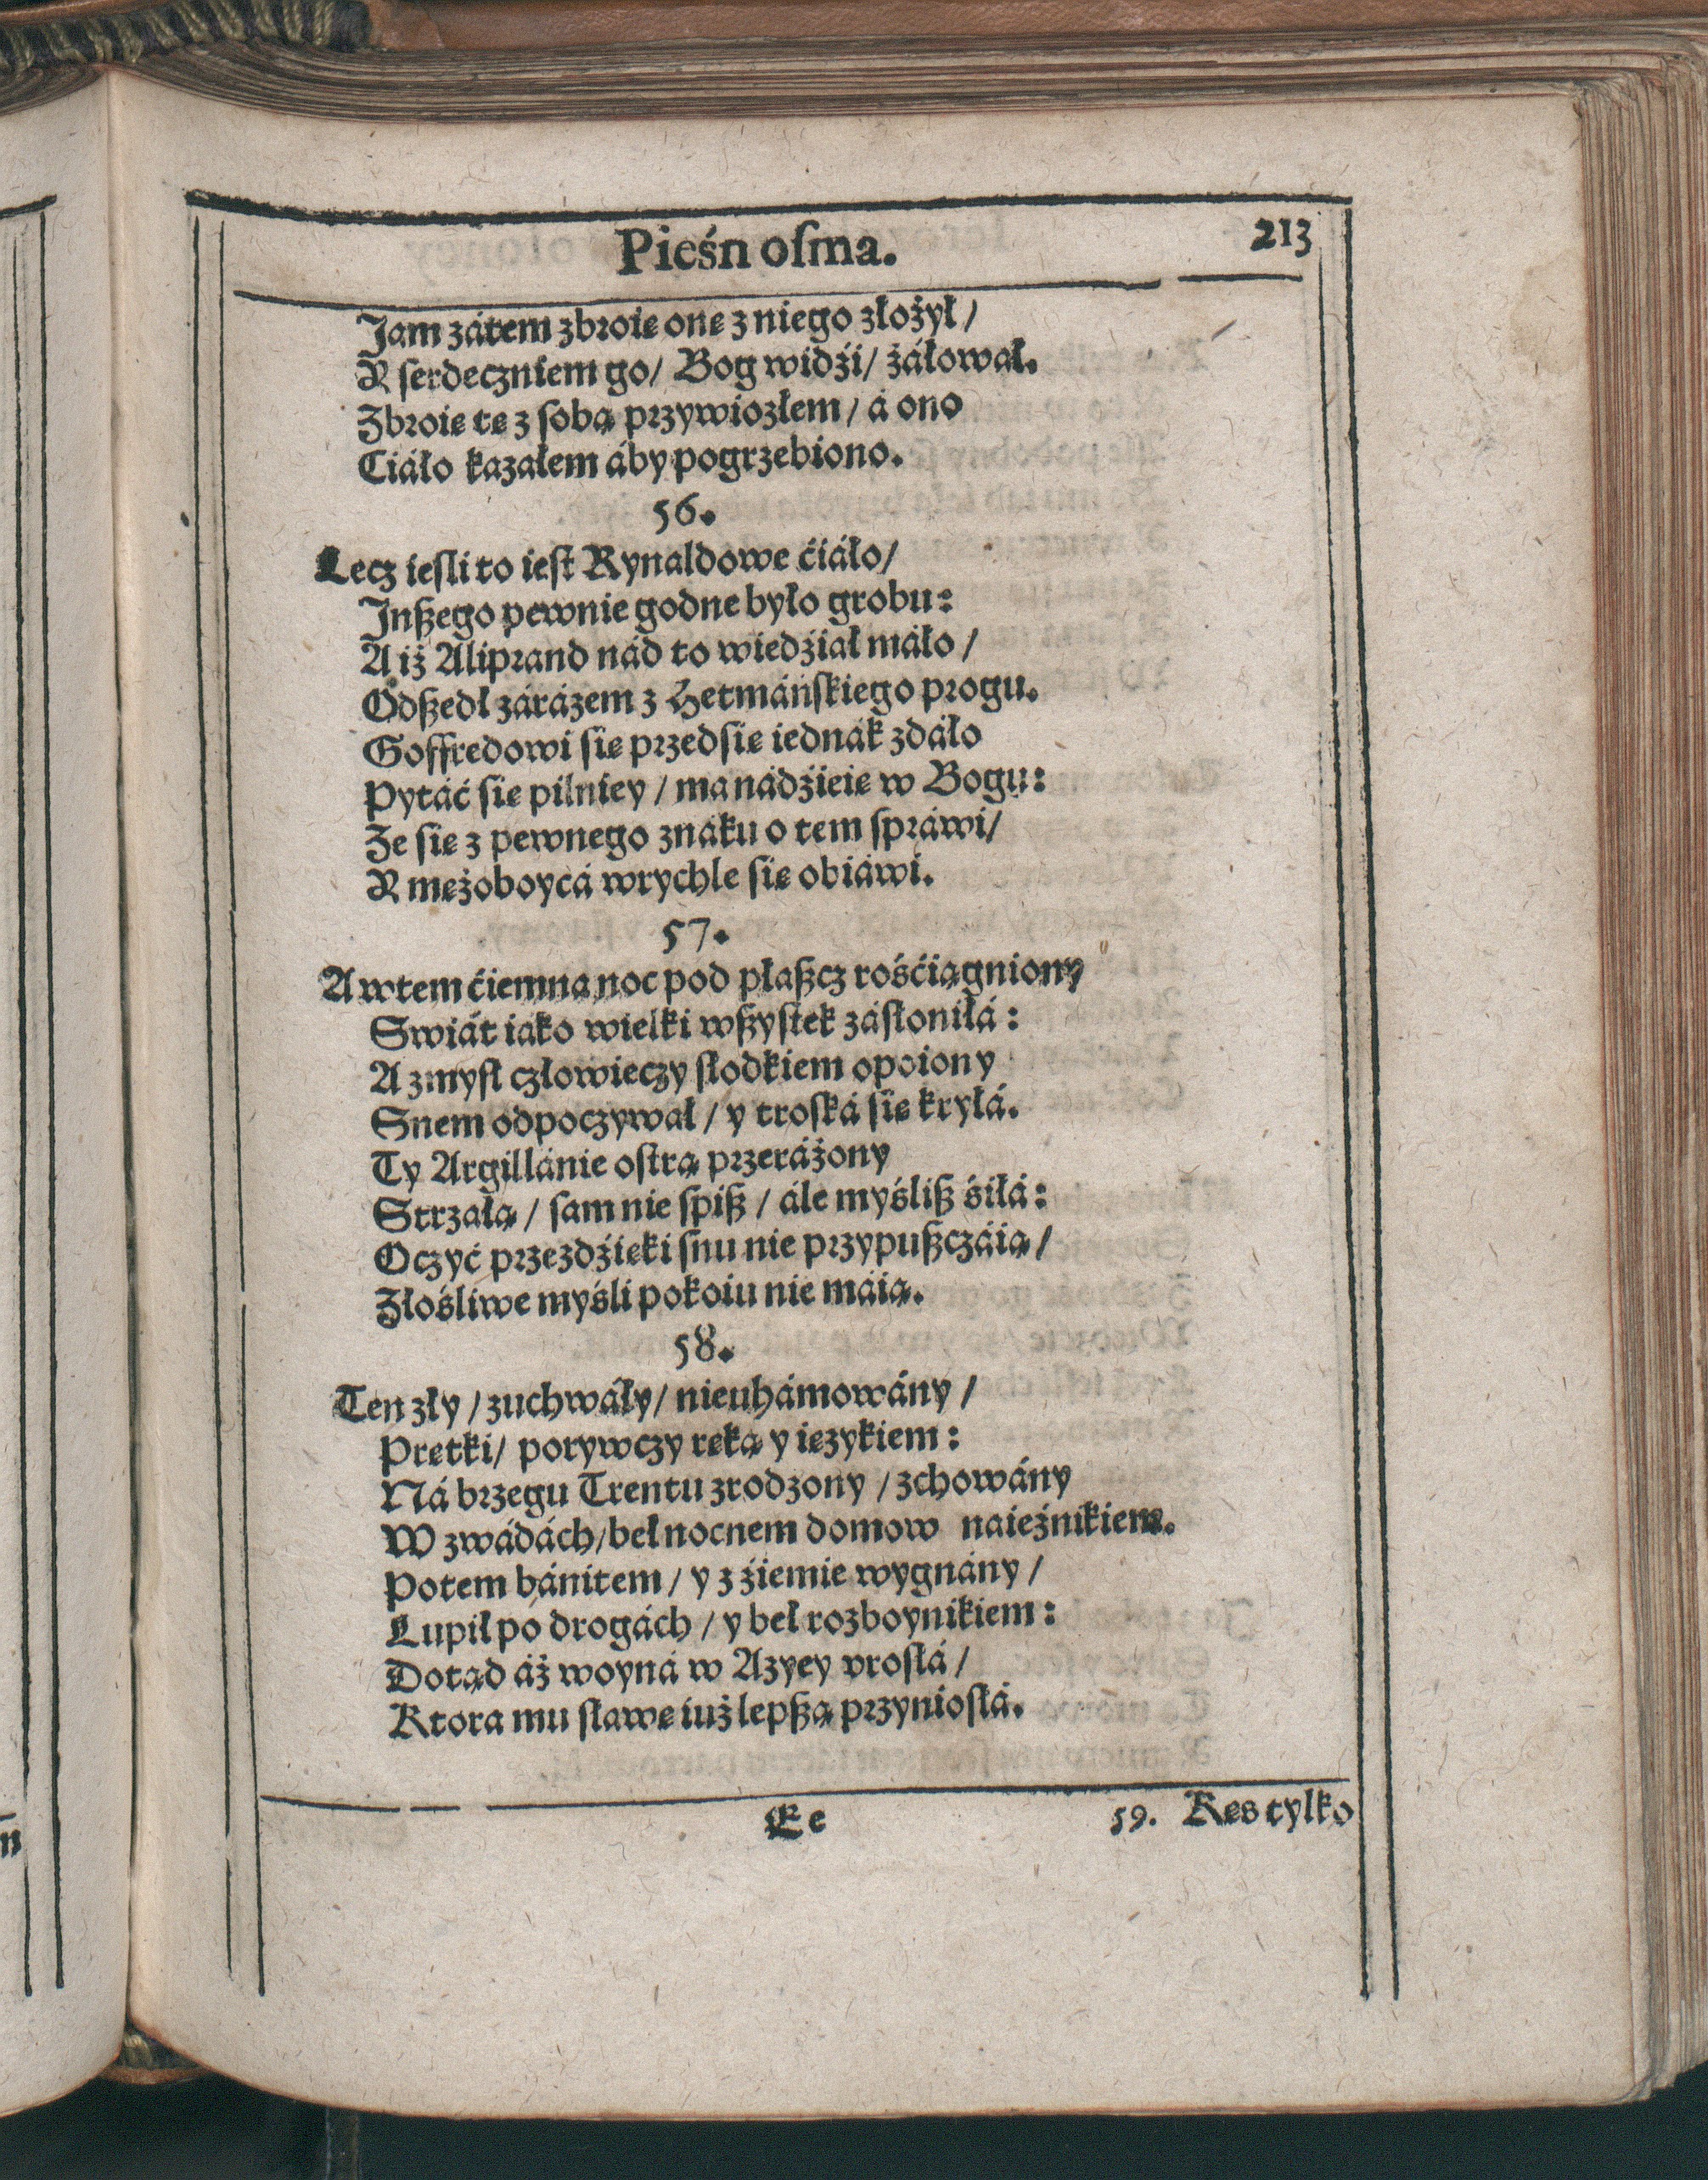 Pieśń oſma. 213
Jam zátem zbroię onę z niego złożył /
Y ſerdeczniem go / Bog widźi / żáłował.
Zbroię tę z ſobą przywiozłem / á ono
Ciáło kazałem áby pogrzebiono.
56.
Lecz ieſli to ieſt Rynaldowe ćiáło /
Jnßego pewnie godne było grobu:
A iż Aliprand nád to wiedźiał máło /
Odßedł zárázem z Hetmáńſkiego progu.
Goffredowi ſię przedſię iednák zdáło
Pytáć ſię pilniey / ma nádźieię w Bogu:
Że ſię z pewnego znáku o tem ſpráwi /
Y mężoboycá wrychle ſię obiáwi.
57.
A wtem ćiemna noc pod płaßcz rośćiągniony
Swiát iáko wielki wßyſtek záſłoniłá:
A zmyſł człowieczy ſłodkiem opoiony
Snem odpoczywał / y troſká ſię kryłá.
Ty Argillánie oſtrą przeráżony
Strzałą / ſam nie ſpiß / ále myśliß śiłá:
Oczyć przezdźięki ſnu nie przypußczáią /
Złośliwe myśli pokoiu nie máią.
58.
Ten zły / zuchwáły / nieuhámowány /
Prętki / porywczy ręką y ięzykiem:
Ná brzegu Trentu zrodzony / zchowány
W zwádách / beł nocnem domow naieźnikiem.
Potem bánitem / y z źiemie wygnány /
Łupił po drogách / y beł rozboynikiem:
Dotąd áż woyná w Azyey vroſłá /
Ktora mu ſławę iuż lepßą przynioſłá.
Ee 59. Kęs tylko
n